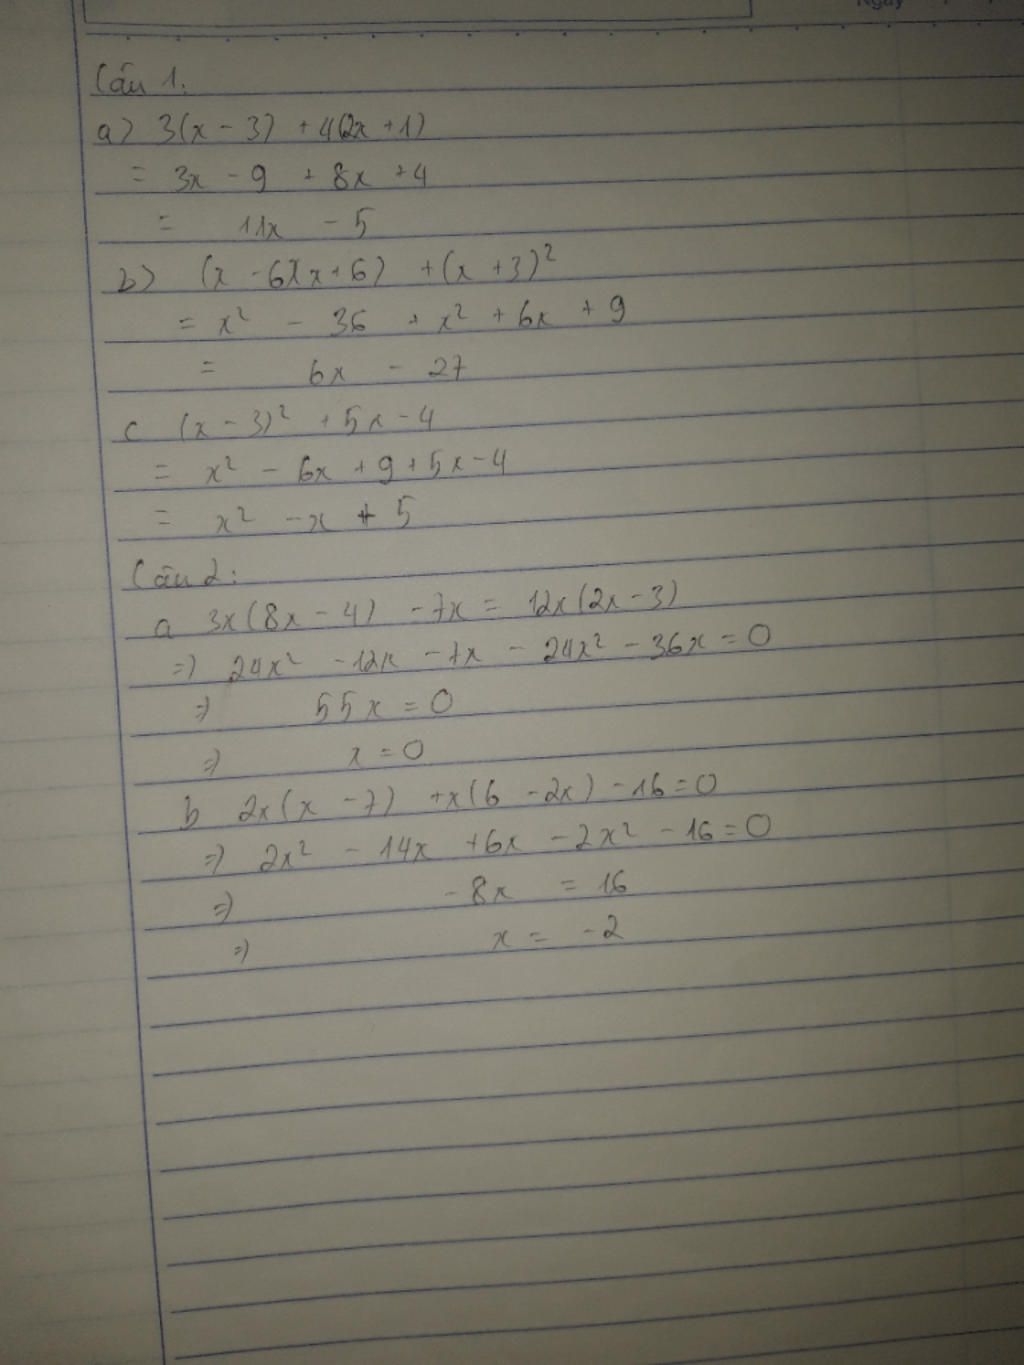 Ngày
Câu 1:
a) 3(x - 3) + 4(2x + 1)
= 3x - 9 + 8x + 4
= 11x - 5
b) (x - 6)(x + 6) + (x + 3)²
= x² - 36 + x² + 6x + 9
= 6x - 27
c (x - 3)² + 5x - 4
= x² - 6x + 9 + 5x - 4
= x² - x + 5
Câu 2:
a 3x(8x - 4) - 7x = 12x(2x - 3)
=> 24x² - 12x - 7x - 24x² - 36x = 0
=> 55x = 0
=> x = 0
b 2x(x - 7) + x(6 - 2x) - 16 = 0
=> 2x² - 14x + 6x - 2x² - 16 = 0
=> -8x = 16
=> x = -2